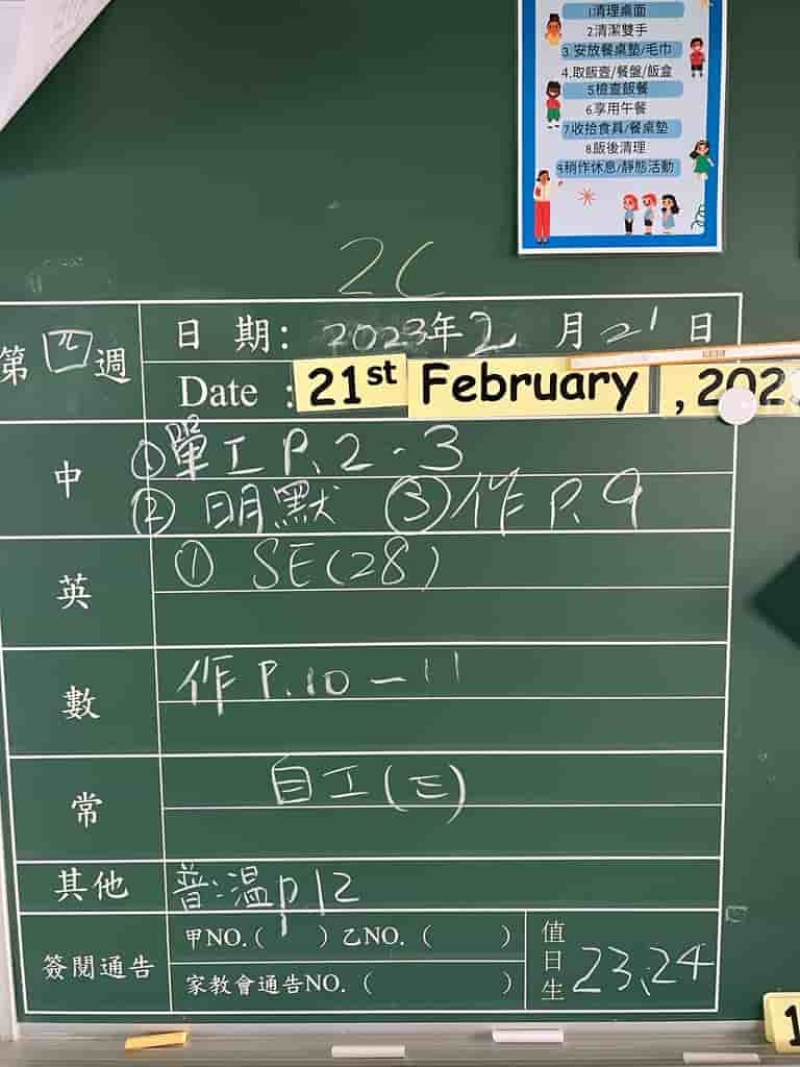 1清理桌面
2.清潔雙手
3.安放餐桌墊/毛巾
4.取飯壺/餐盤/飯盒
5檢查飯餐
6.享用午餐
7收拾食具/餐桌墊
8.飯後清理
9稍作休息/靜態活動
2C
第四週
日期: 2023年2月21日
Date : 21st February , 202
中
①單工 P.2-3
②明默 ③作 P.9
英
① SE(28)
數
作 P.10-11
常
自工(三)
其他
普:温p12
簽閱通告
甲NO.( ) 乙NO. ( )
家教會通告NO. ( )
值日生 23,24
1